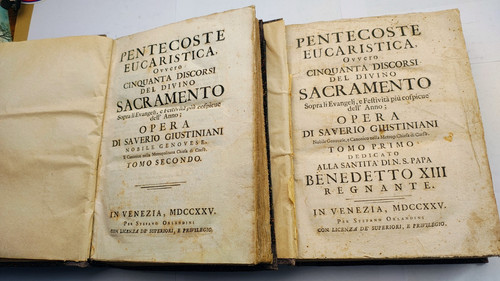 PENTECOSTE
EUCARISTICA,
Ovvero
CINQUANTA DISCORSI
DEL DIVINO
SACRAMENTO
Sopra li Evangeli, e Festività più cospicue
dell' Anno;
OPERA
DI SAVERIO GIUSTINIANI
NOBILE GENOVESE,
E Canonico nella Metropolitana Chiesa di
TOMO SECONDO.
IN VENEZIA, MDCCXXV.
Per Stefano Orlandini
CON LICENZA DE' SUPERIORI, E PRIVILEGIO.
PENTECOSTE
EUCARISTICA,
Ovvero
CINQUANTA DISCORSI
DEL DIVINO
SACRAMENTO
Sopra li Evangeli, e Festività più cospicue
dell' Anno;
OPERA
DI SAVERIO GIUSTINIANI
Nobile Genovese, e Canonico nella Metrop. Chiesa di
TOMO PRIMO
DEDICATO
ALLA SANTITÀ DI N. S. PAPA
BENEDETTO XIII
REGNANTE.
IN VENEZIA, MDCCXXV.
Per Stefano Orlandini
CON LICENZA DE' SUPERIORI, E PRIVILEGIO.